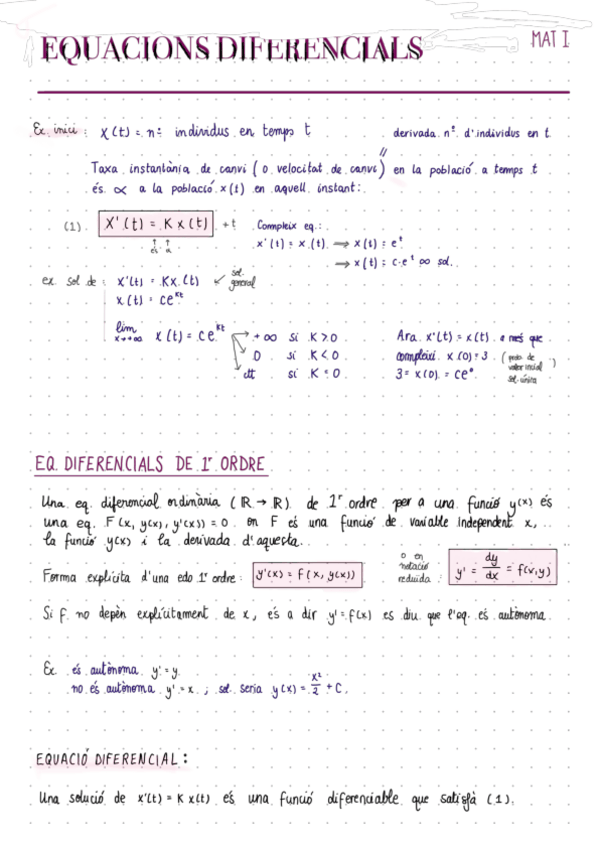 EQUACIONS DIFERENCIALS
MAT I
Ex. inici: x(t) = nº individus en temps t
derivada nº d'individus en t
//
Taxa instantània de canvi (o velocitat de canvi) en la població a temps t
és ∝ a la població x(t) en aquell instant:
(1) x'(t) = K x(t) ∀t Compleix eq.:
x'(t) = x(t) ⟹ x(t) = e^t
⟹ x(t) = c·e^t ∞ sol.
ex. sol de: x'(t) = Kx(t) ↙ sol. general
x(t) = ce^kt
lim x→+∞ x(t) = ce^kt
+∞ si K>0
0 si K<0
ctt si K=0
Ara x'(t) = x(t) a més que
compleixi x(0)=3 (prob de valor inicial sol. única)
3 = x(0) = ce⁰
EQ. DIFERENCIALS DE 1r ORDRE
Una eq. diferencial ordinària (ℝ → ℝ) de 1r ordre per a una funció y(x) és
una eq. F(x, y(x), y'(x)) = 0 on F és una funció de variable independent x,
la funció y(x) i la derivada d'aquesta.
Forma explícita d'una edo 1r ordre: y'(x) = f(x, y(x))
o en notació reduïda: y' = dy/dx = f(x,y)
Si f no depèn explícitament de x, és a dir y' = f(x) es diu que l'eq. és autònoma.
Ex. és autònoma y' = y
no és autònoma y' = x ; sol. seria y(x) = x²/2 + C.
EQUACIÓ DIFERENCIAL:
Una solució de x'(t) = K x(t) és una funció diferenciable que satisfà (1).